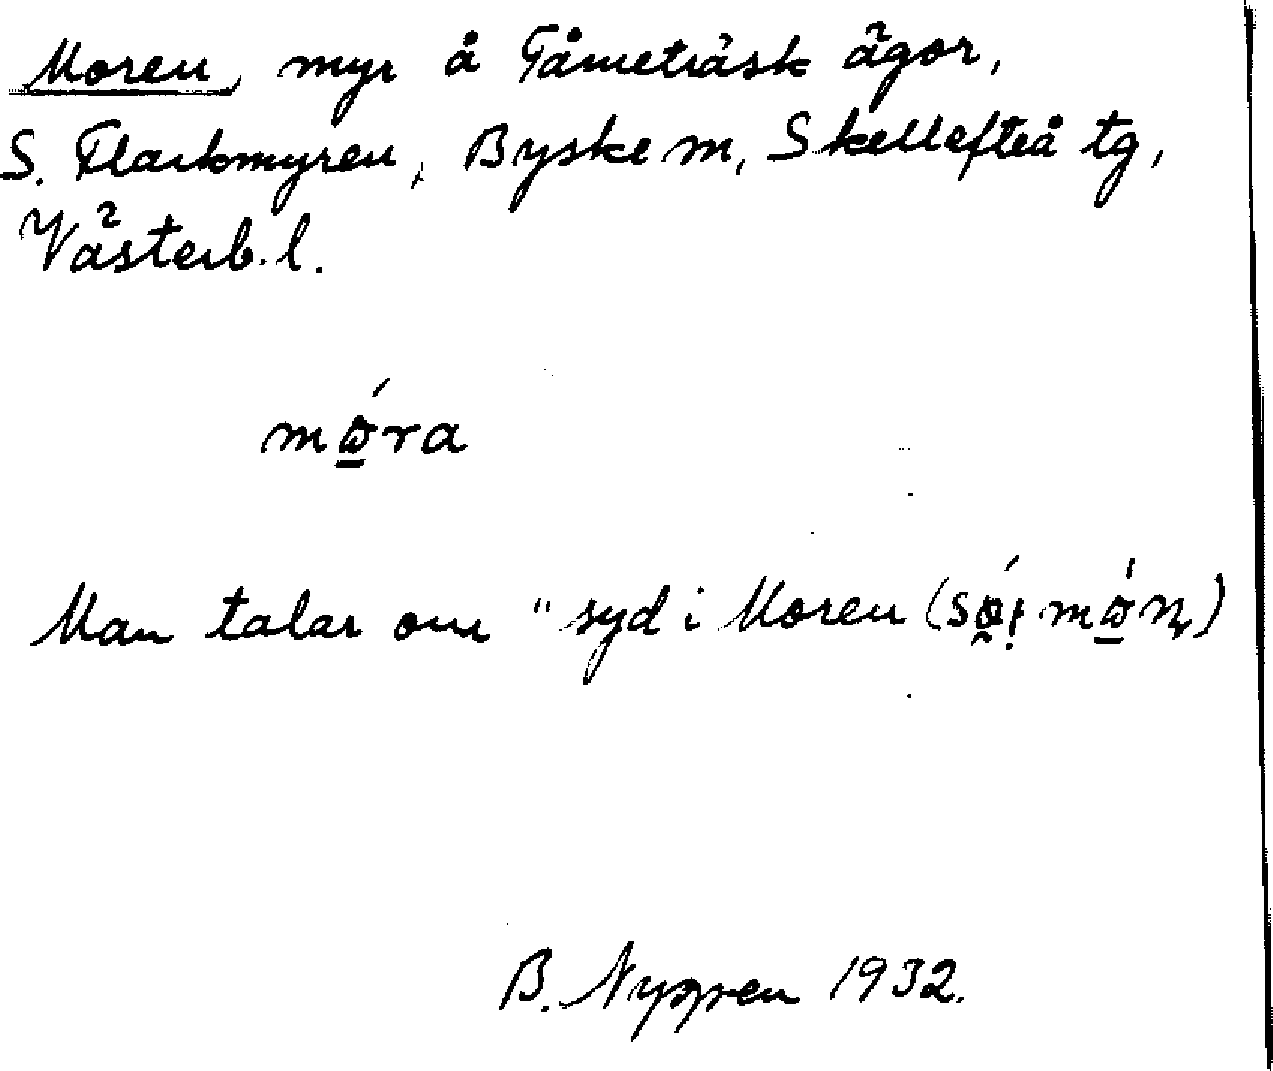 Moren, myr å Tåmeträsk ägor,
S. Flarkmyren, Byske m, Skellefteå tg,
Västerb. l.
Man talar om "syd i Moren (
B. Nygren 1932.